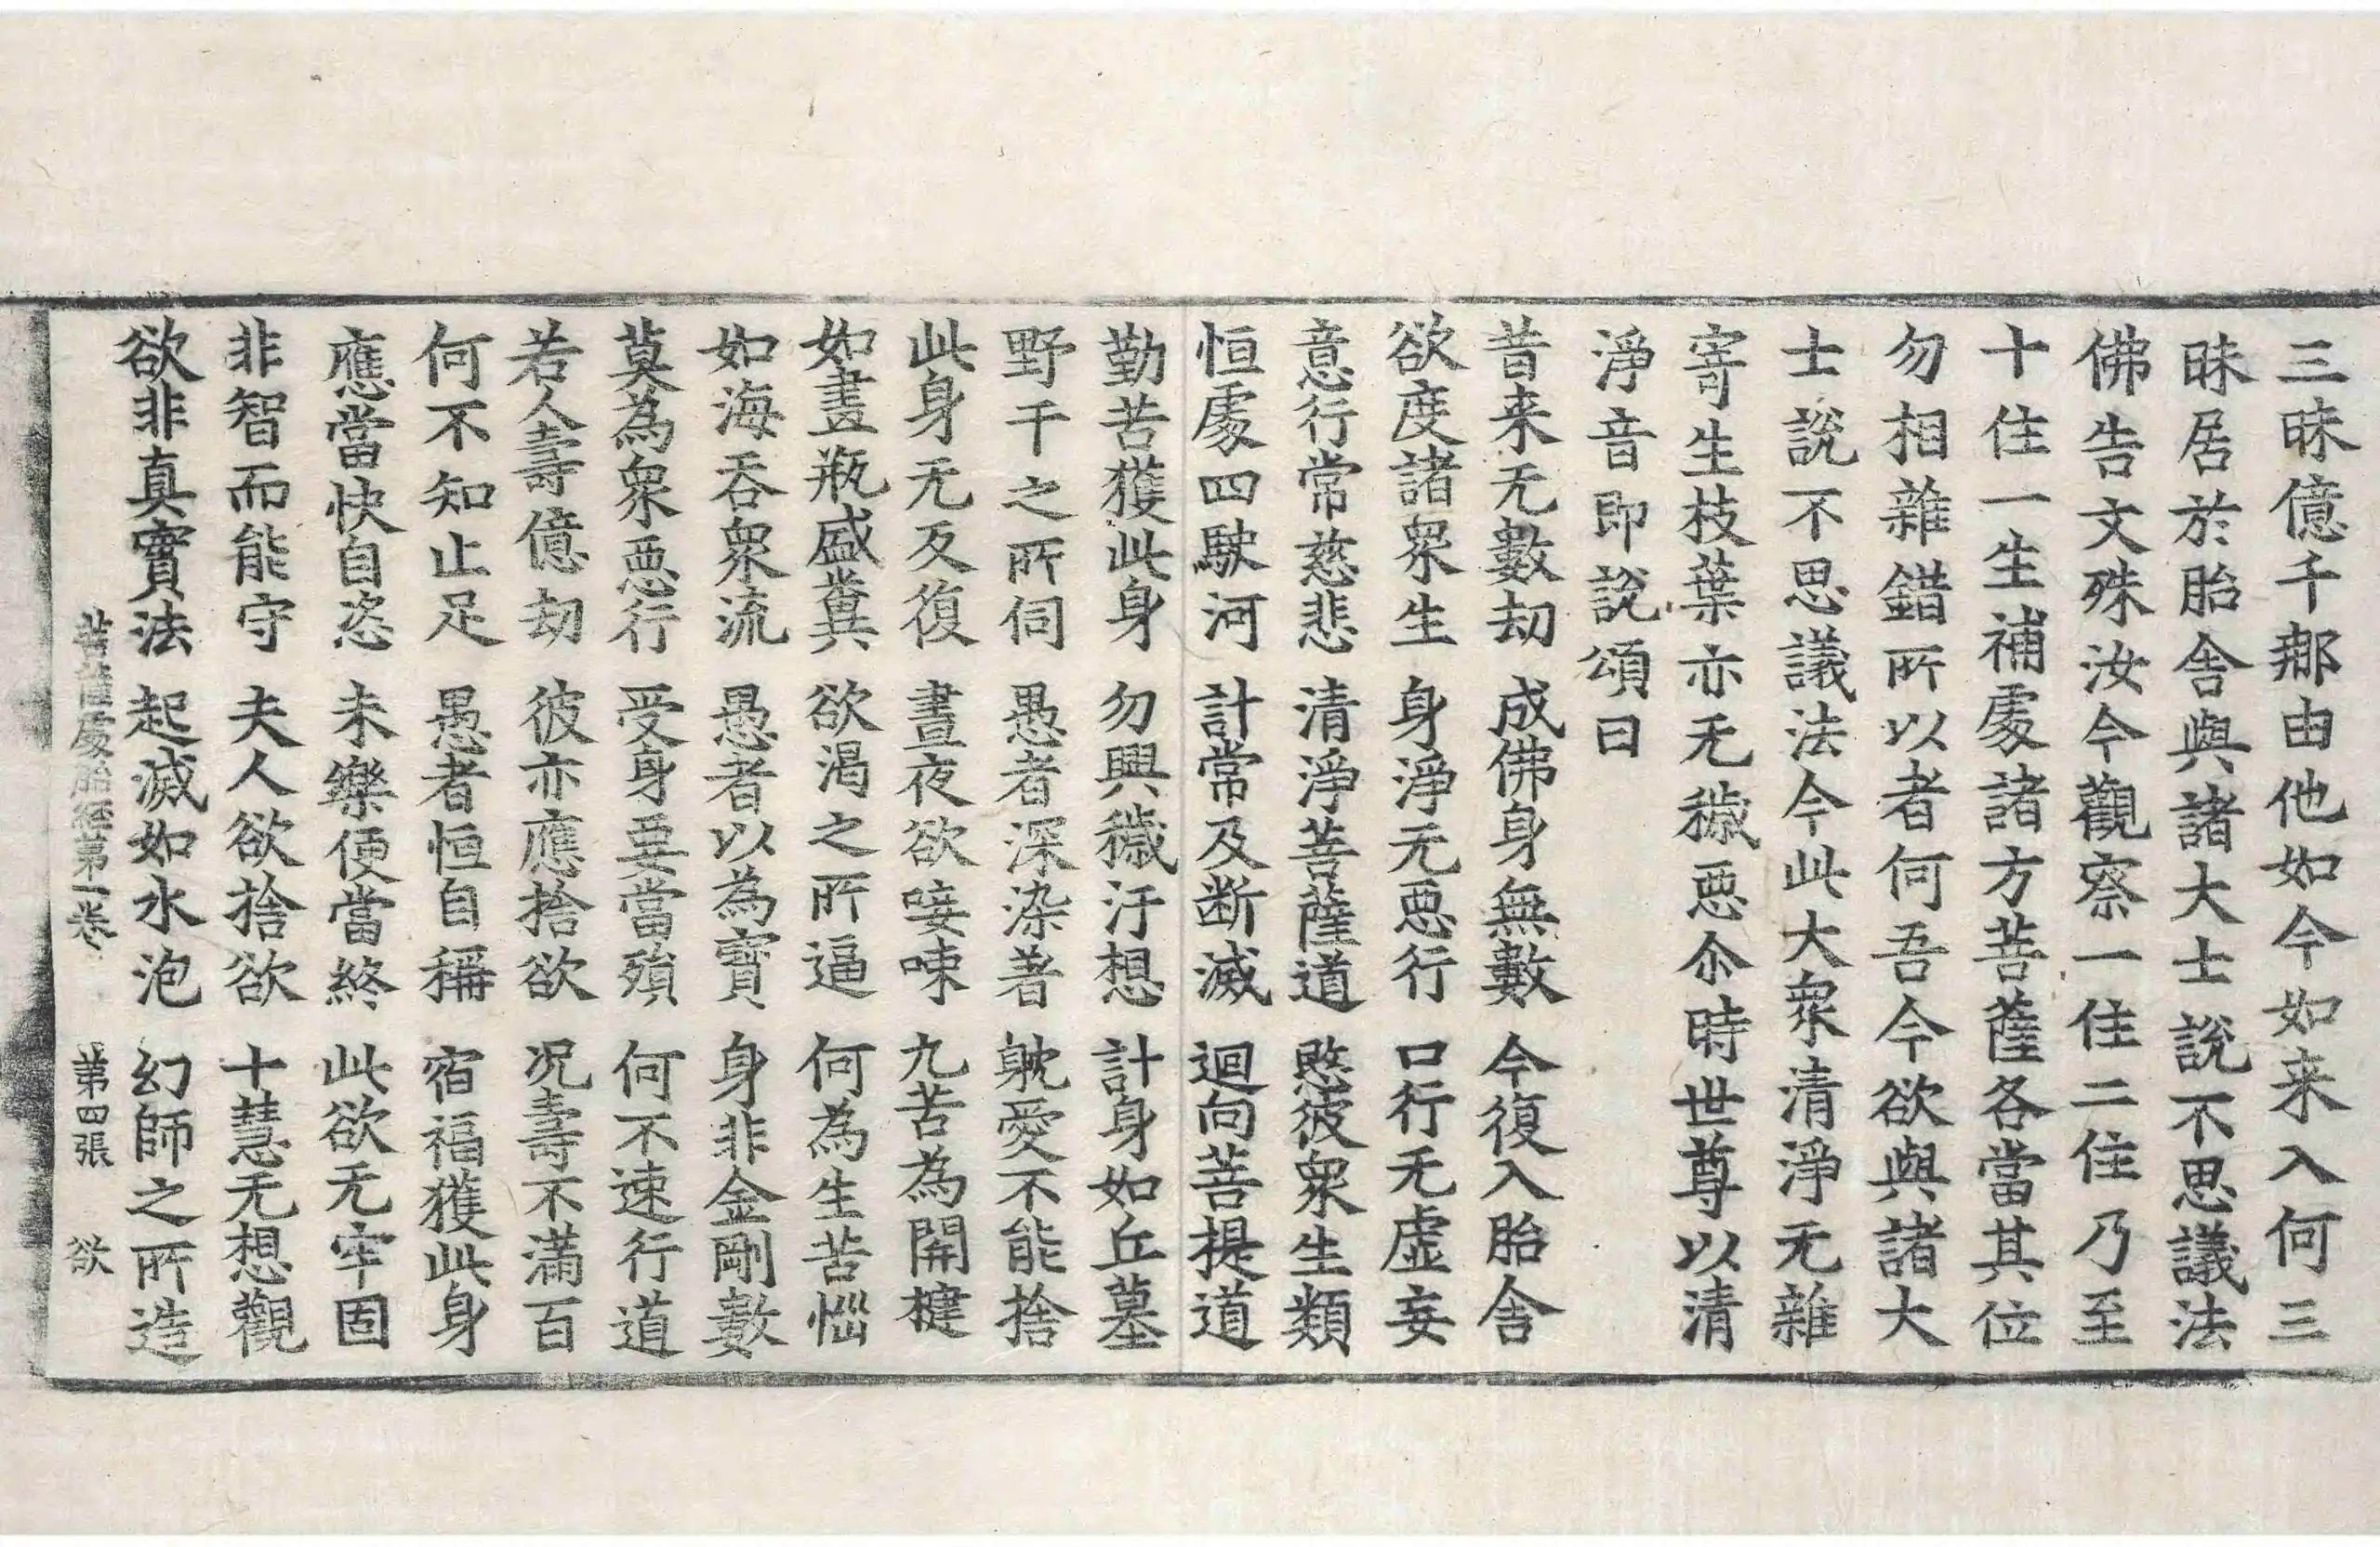 三昧億千㲚由他如今如来入何三
昧居於胎舍與諸大士說不思議法
佛告文殊汝今觀察一住二住乃至
十住一生補處諸方菩薩各當其位
勿相雜錯所以者何吾今欲與諸大
士說不思議法今此大衆清淨无雜
寄生枝葉亦无穢惡尒時世尊以清
淨音即說頌曰
昔来无數劫　成佛身無數　今復入胎舍
欲度諸衆生　身淨无惡行　口行无虛妄
意行常慈悲　清淨菩薩道　愍彼衆生類
恒處四駛河　計常及断滅　迴向菩提道
勤苦獲此身　勿興穢汙想　計身如丘墓
野干之所伺　愚者深染著　躭愛不能捨
此身无反復　晝夜欲唼㖨　九苦為關楗
如畫瓶盛糞　欲渴之所逼　何為生苦惱
如海吞衆流　愚者以為寶　身非金剛數
莫為衆惡行　受身要當殞　何不速行道
若人壽億劫　彼亦應捨欲　況壽不滿百
何不知止足　愚者恒自稱　宿福獲此身
應當快自恣　未樂便當終　此欲无牢固
非智而能守　夫人欲捨欲　十慧无想觀
欲非真實法　起滅如水泡　幻師之所造
菩薩處胎經第一卷　第四張　欲